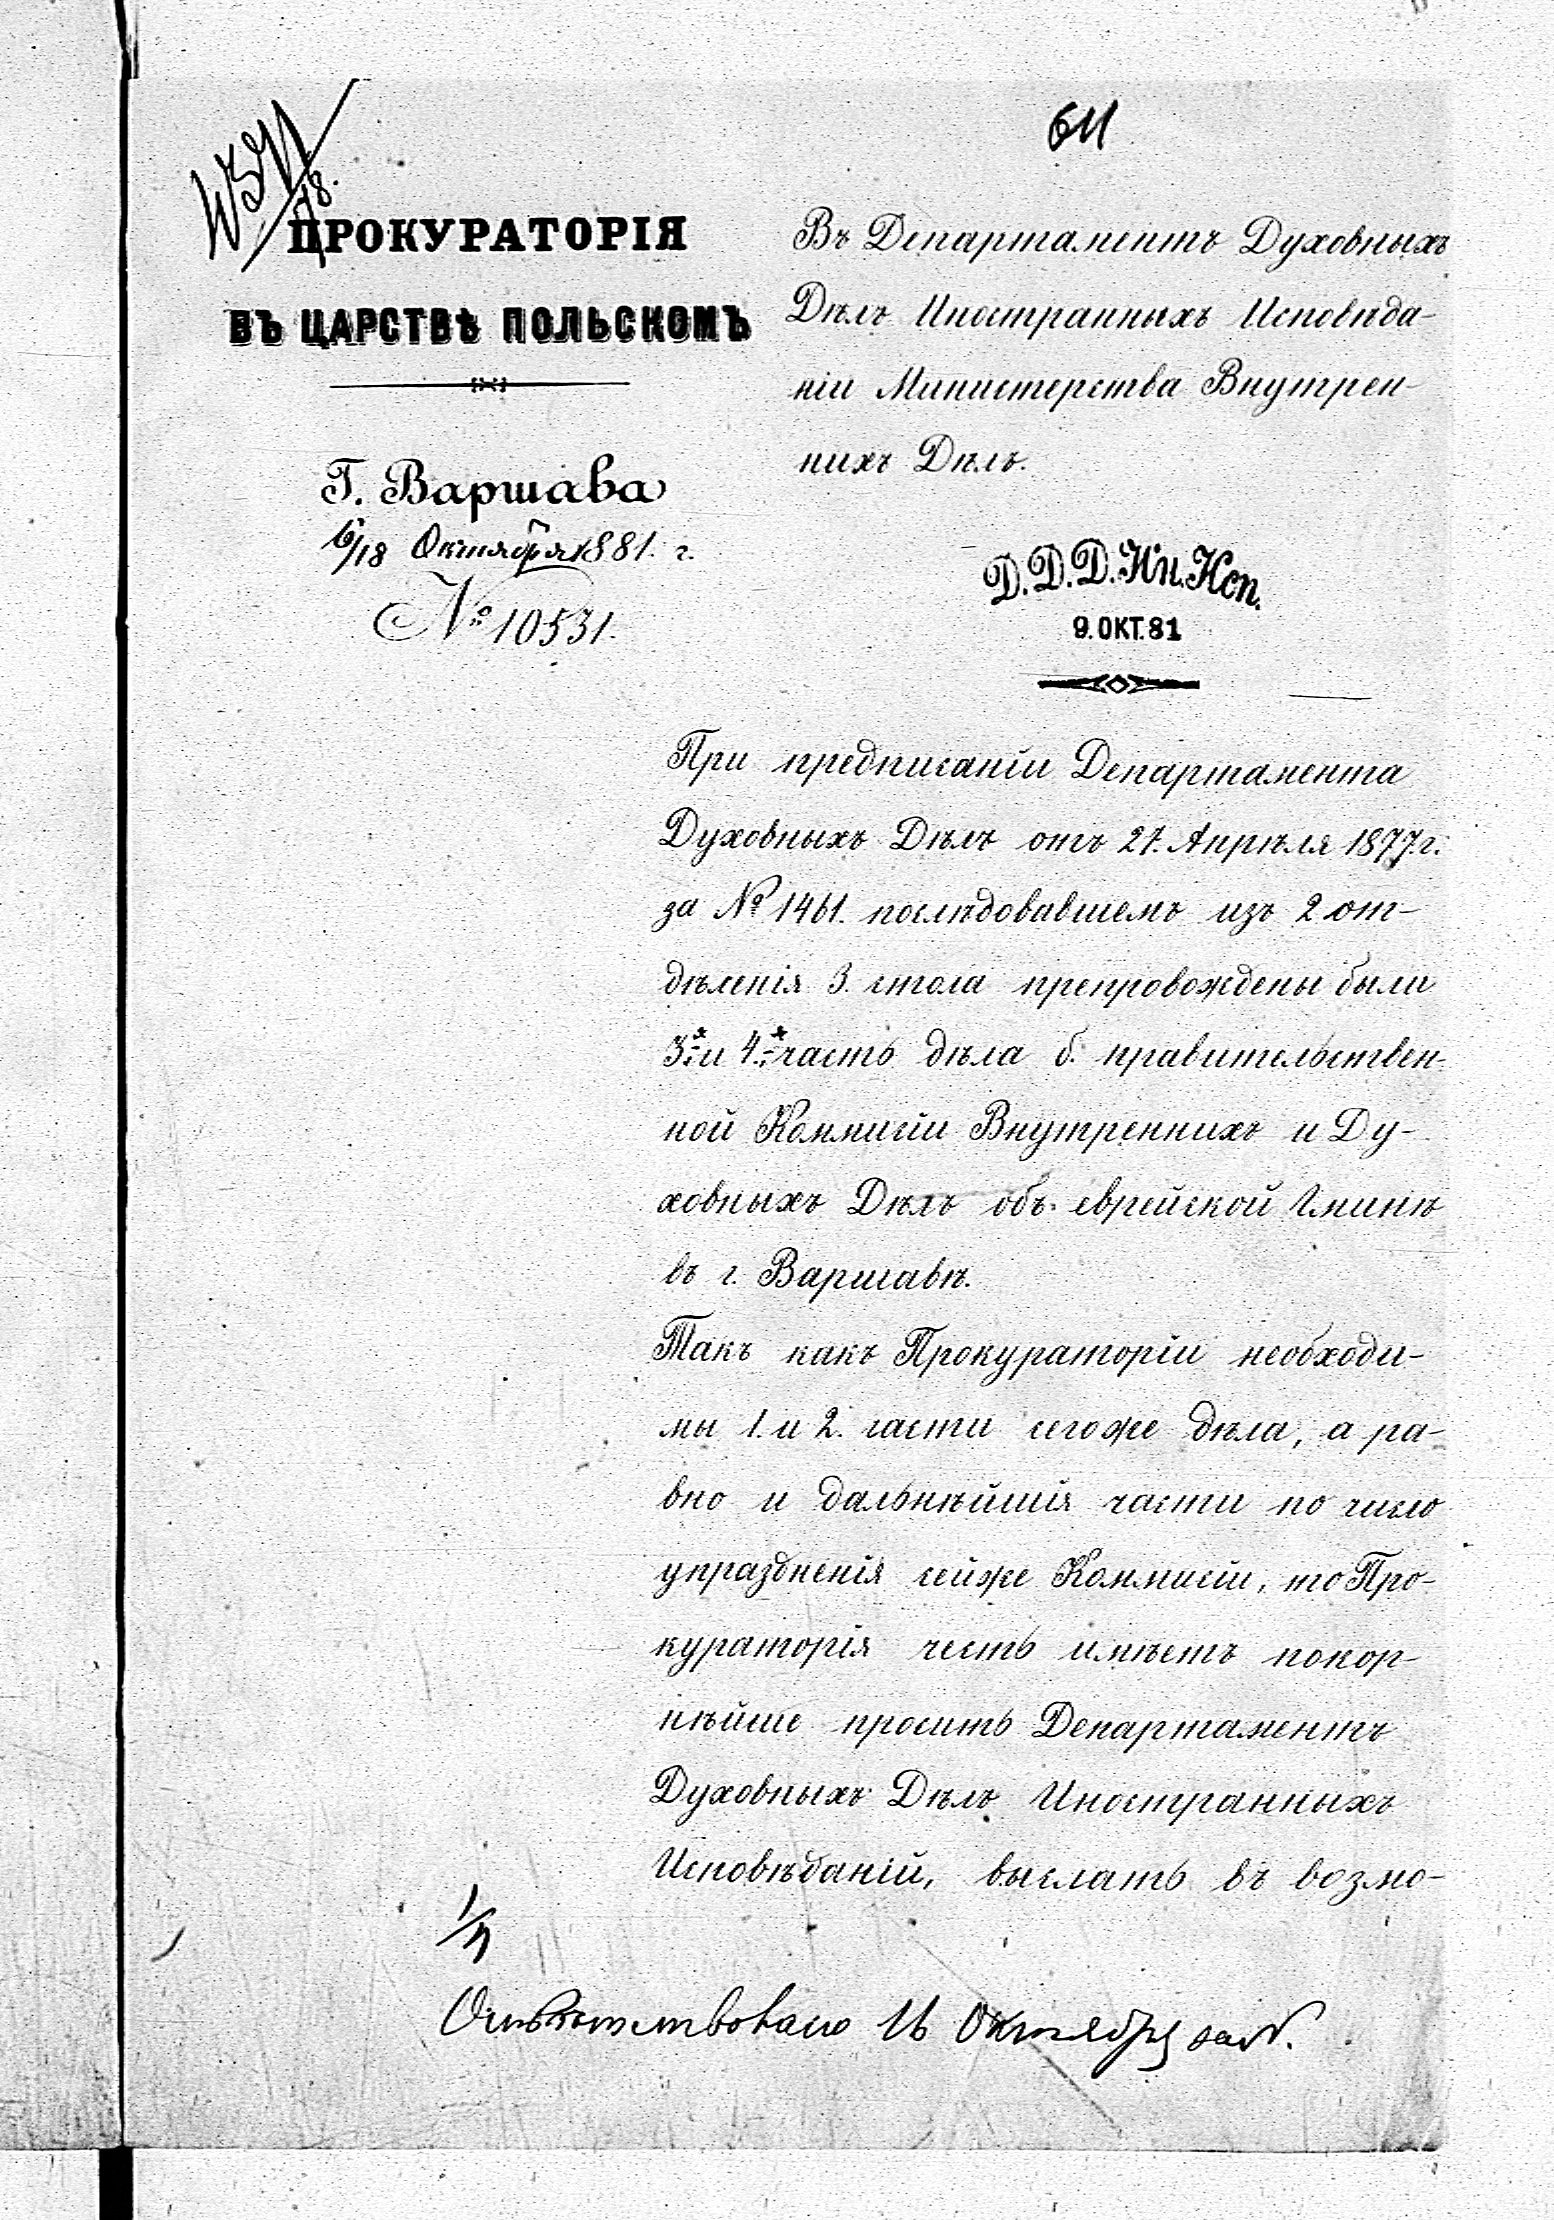 611
ПРОКУРАТОРІЯ
ВЪ ЦАРСТВѢ ПОЛЬСКОМЪ
Г. Варшава
6/18 Октября 1881. г.
№ 10531.
Въ Департаментъ Духовныхъ
Дѣлъ Иностранныхъ Исповѣда-
ніи Министерства Внутрен-
нихъ Дѣлъ.
Д.Д.Д.Ин.Исп.
9.ОКТ.81
При предписаніи Департамента
Духовныхъ Дѣлъ отъ 27. Апрѣля 1877 г.
за № 1461. послѣдовавшемъ изъ 2 от-
дѣленія 3. стола препровождены были
3. и 4. часть дѣла б. правительствен-
ной Коммисіи Внутреннихъ и Ду-
ховныхъ Дѣлъ объ еврейской Гминѣ
въ г. Варшавѣ.
Такъ какъ Прокураторіи необходи-
мы 1. и 2. части сегоже дѣла, а ра-
вно и дальнѣйшія части по число
упраздненія сейже Коммисіи, то Про-
кураторія честь имѣетъ покор-
нѣйше просить Департаментъ
Духовныхъ Дѣлъ Иностранныхъ
Исповѣданій, выслать въ возмо-
Отвѣтствовано 16 Октября за №.